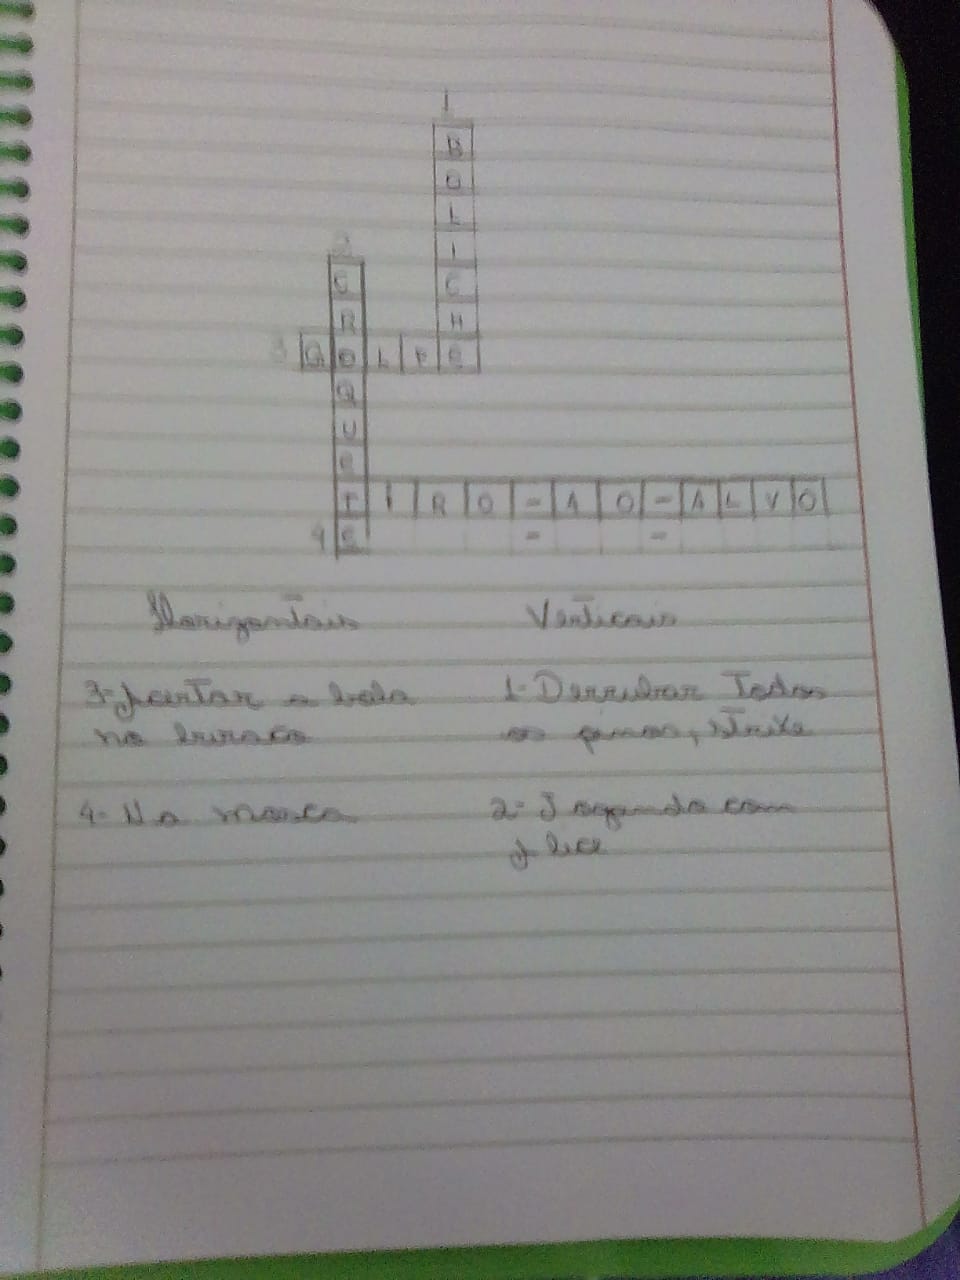 1
B
O
L
I
2
C
C
R
H
3 G O L F E
Q
U
E
T I R O - A O - A L V O
4 E - -
Horizontais Verticais
3- Acertar a bola 1- Derrubar Todos
no buraco os pinos, strike
4- Na mosca 2- Jogando com
Alice